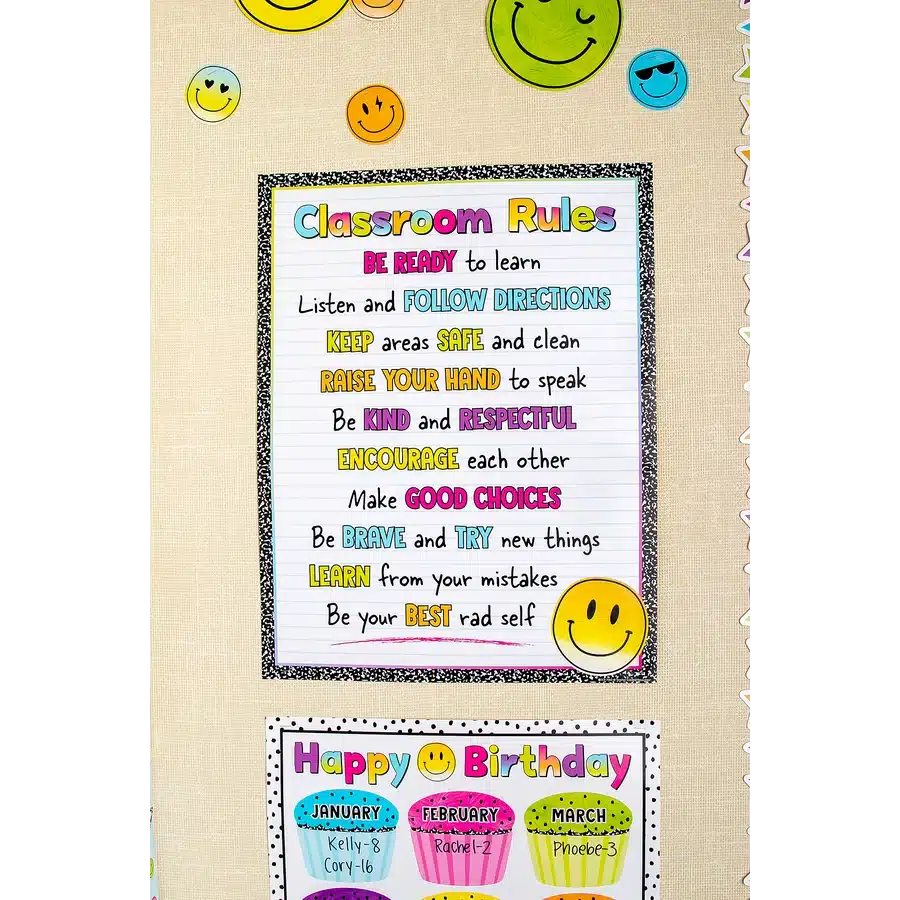 Classroom Rules
BE READY to learn
Listen and FOLLOW DIRECTIONS
KEEP areas SAFE and clean
RAISE YOUR HAND to speak
Be KIND and RESPECTFUL
ENCOURAGE each other
Make GOOD CHOICES
Be BRAVE and TRY new things
LEARN from your mistakes
Be your BEST rad self
Happy Birthday
JANUARY FEBRUARY MARCH
Kelly-8 Rachel-2 Phoebe-3
Cory-16